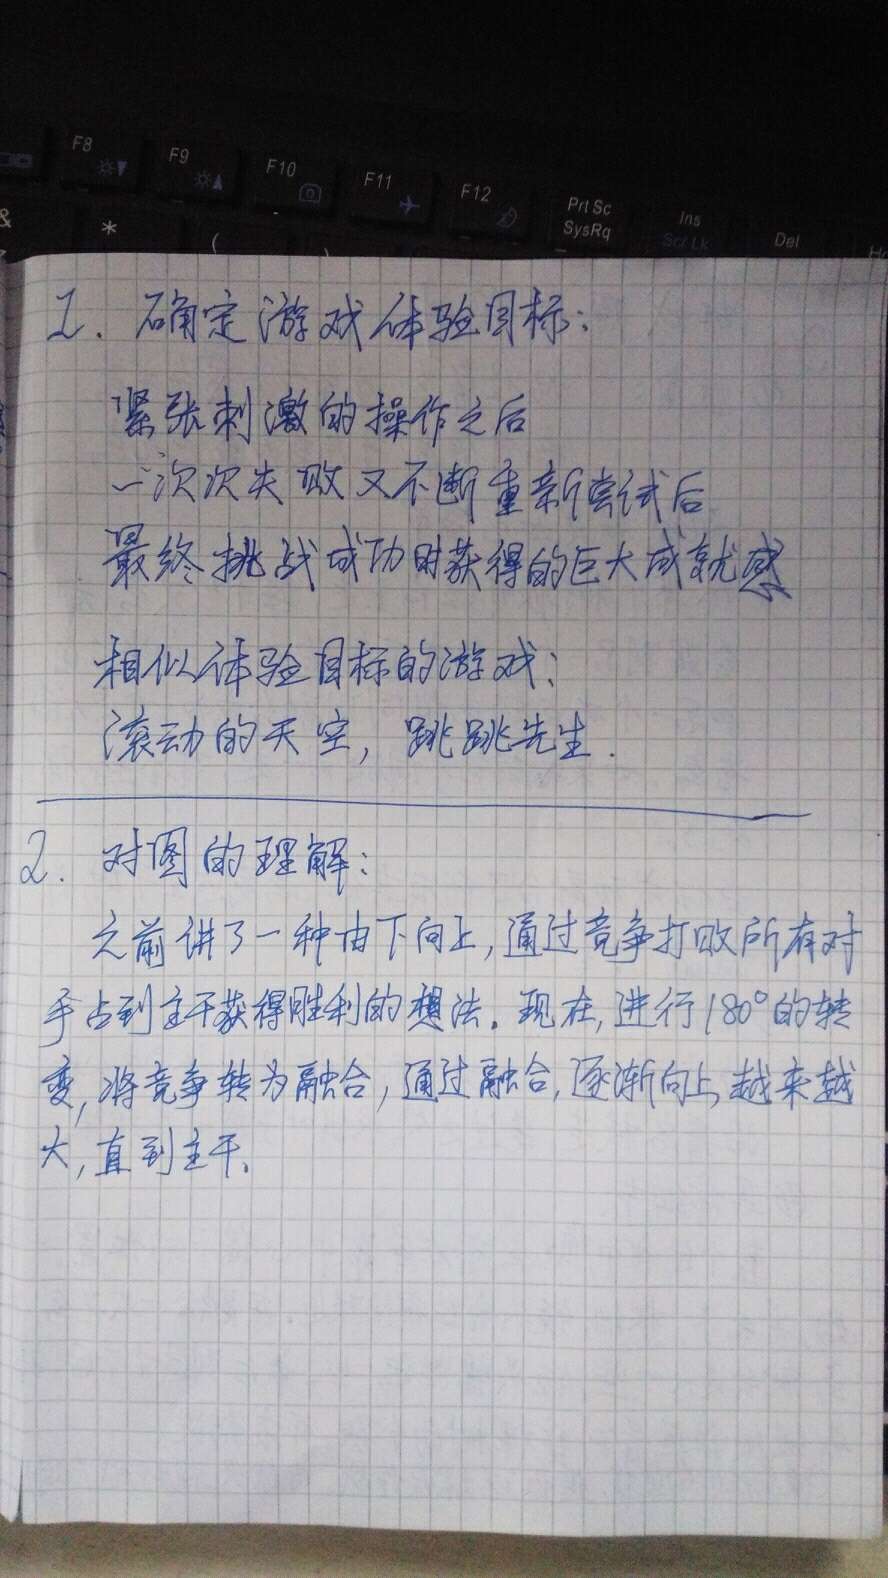 F8
F9
F10
F11
F12
Prt Sc
SysRq
Ins
Scr Lk
Del
&
*
(
)
1. 确定游戏体验目标:
紧张刺激的操作之后
一次次失败又不断重新尝试后
最终挑战成功时获得的巨大成就感
相似体验目标的游戏:
滚动的天空, 跳跳先生.
2. 对图的理解:
之前讲了一种由下向上, 通过竞争打败所有对
手占到主干获得胜利的想法. 现在, 进行180°的转
变, 将竞争转为融合, 通过融合, 逐渐向上, 越来越
大, 直到主干.